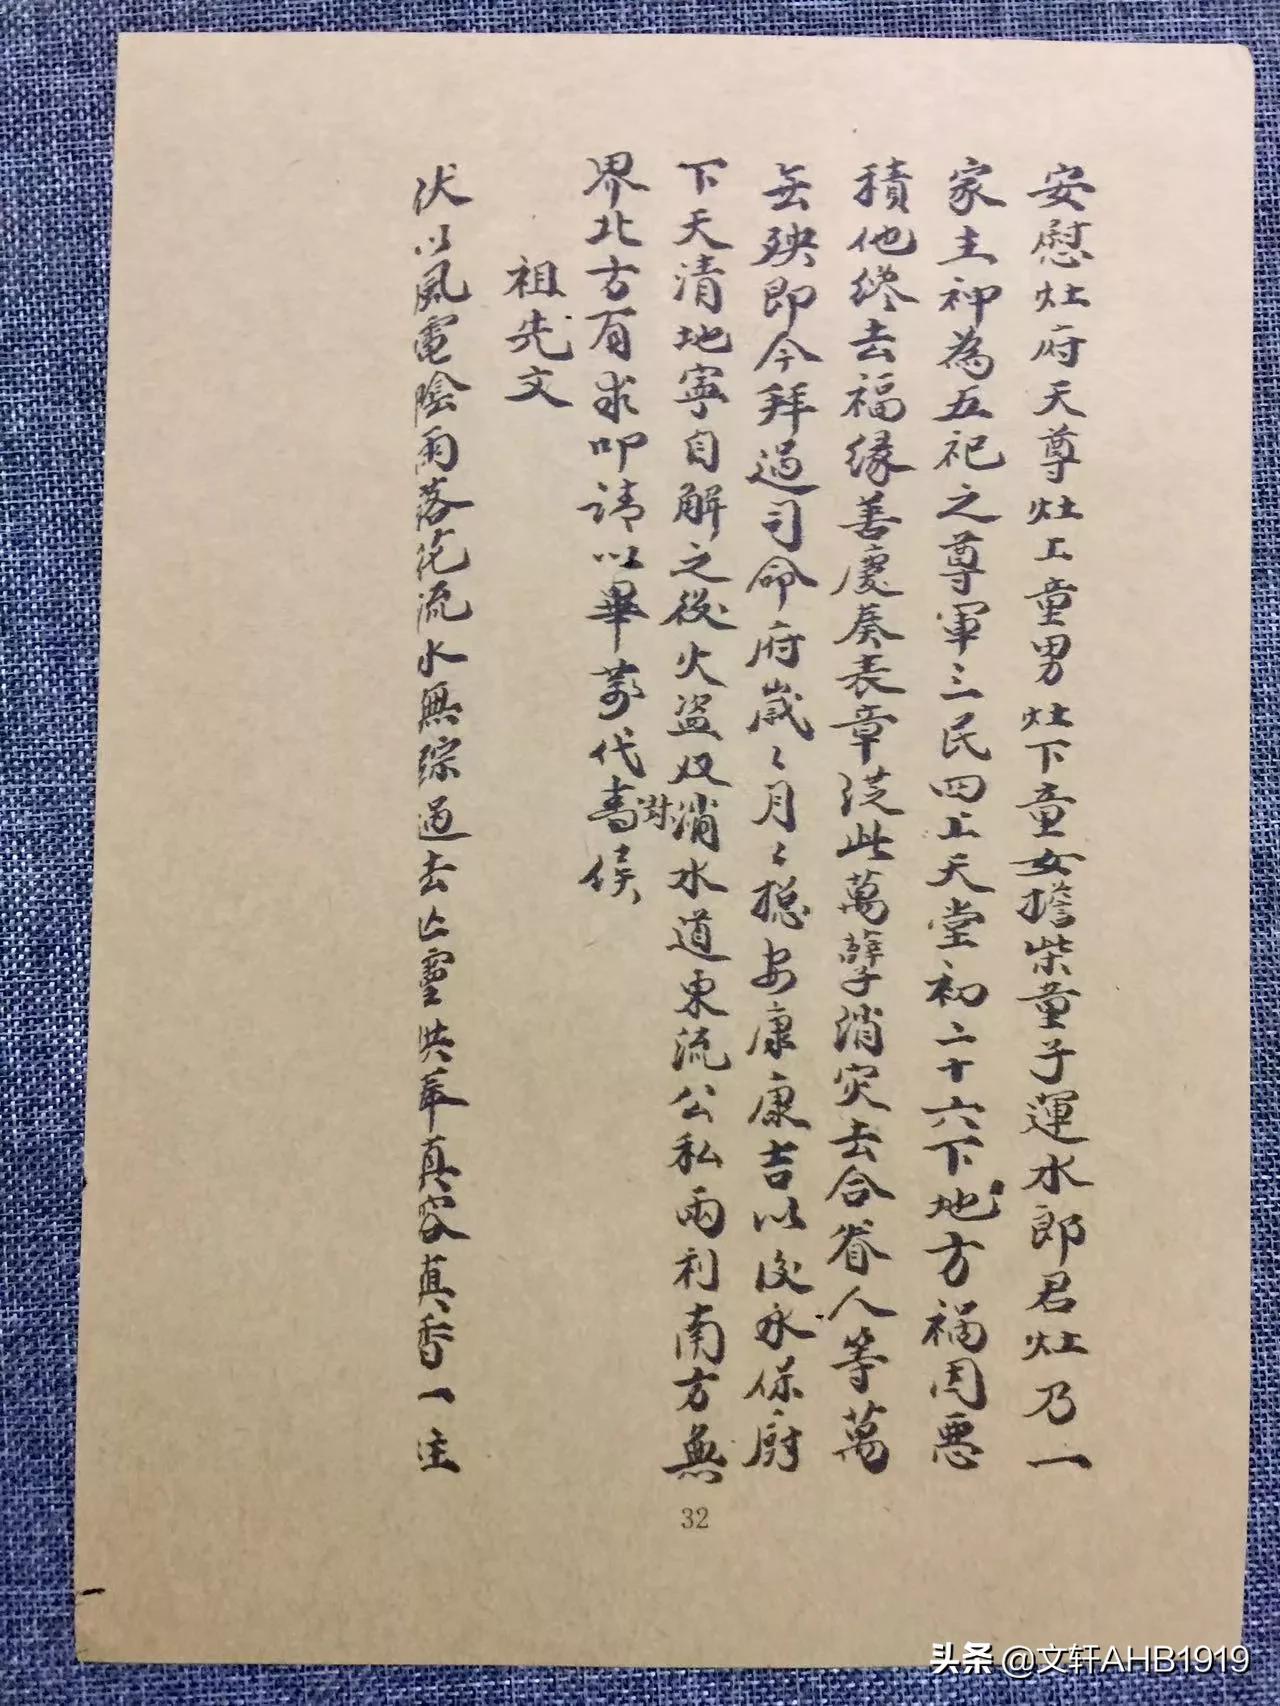 安慰灶府天尊灶上童男灶下童女擔柴童子運水郎君灶乃一
家主神為五祀之尊軍三民四上天堂初二十六下地方禍因惡
積他終去福緣善慶奏表章從此萬孽消災去合眷人等萬
無殃即今拜過司命府歲〻月〻穩安康康吉以後永保廚
下天清地寧自解之後火盜奴消水道東流公私兩利南方無
對
界北方有求叩請以畢蔡代書侯
祖先文
伏以風電陰雨落花流水無踪過去亡靈洪華真容真香一主
32
头条 @文轩AHB1919